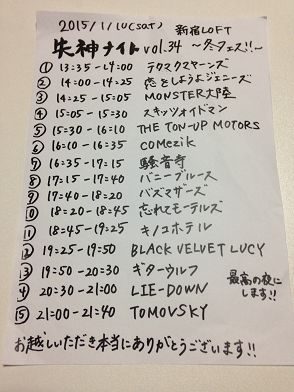 2015/1/10(SAT) 新宿LOFT
失神ナイト vol.34 〜冬フェス!!〜
① 13:35-14:00 テクマクマヤーンズ
② 14:00-14:25 恋をしようよジェニーズ
③ 14:25-15:05 MONSTER大陸
④ 15:05-15:30 スキッツオイドマン
⑤ 15:30-16:10 THE TON-UP MOTORS
⑥ 16:10-16:35 COMEZIK
⑦ 16:35-17:15 騒音寺
⑧ 17:15-17:40 バニーブルース
⑨ 17:40-18:20 バズマザーズ
⑩ 18:20-18:45 忘れてモーテルズ
⑪ 18:45-19:25 キノコホテル
⑫ 19:25-19:50 BLACK VELVET LUCY
⑬ 19:50-20:30 ギターウルフ
⑭ 20:30-21:00 LIE-DOWN
最高の夜に
します!!
⑮ 21:00-21:40 TOMOVSKY
お越しいただき本当にありがとうございます!!